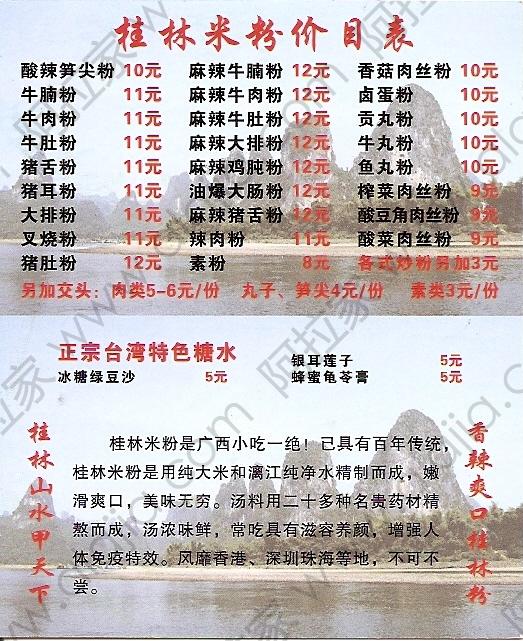 桂林米粉价目表
酸辣笋尖粉 10元 麻辣牛腩粉 12元 香菇肉丝粉 10元
牛腩粉 11元 麻辣牛肉粉 12元 卤蛋粉 10元
牛肉粉 11元 麻辣牛肚粉 12元 贡丸粉 10元
牛肚粉 11元 麻辣大排粉 12元 牛丸粉 10元
猪舌粉 11元 麻辣鸡肫粉 12元 鱼丸粉 10元
猪耳粉 11元 油爆大肠粉 12元 榨菜肉丝粉 9元
大排粉 11元 麻辣猪舌粉 12元 酸豆角肉丝粉 9元
叉烧粉 11元 辣肉粉 11元 酸菜肉丝粉 9元
猪肚粉 12元 素粉 8元 各式炒粉另加3元
另加交头：肉类5-6元/份 丸子、笋尖4元/份 素类3元/份
正宗台湾特色糖水
银耳莲子 5元
冰糖绿豆沙 5元 蜂蜜龟苓膏 5元
桂林山水甲天下
桂林米粉是广西小吃一绝！已具有百年传统，
桂林米粉是用纯大米和漓江纯净水精制而成，嫩
滑爽口，美味无穷。汤料用二十多种名贵药材精
熬而成，汤浓味鲜，常吃具有滋容养颜，增强人
体免疫特效。风靡香港、深圳珠海等地，不可不
尝。
香辣爽口桂林粉